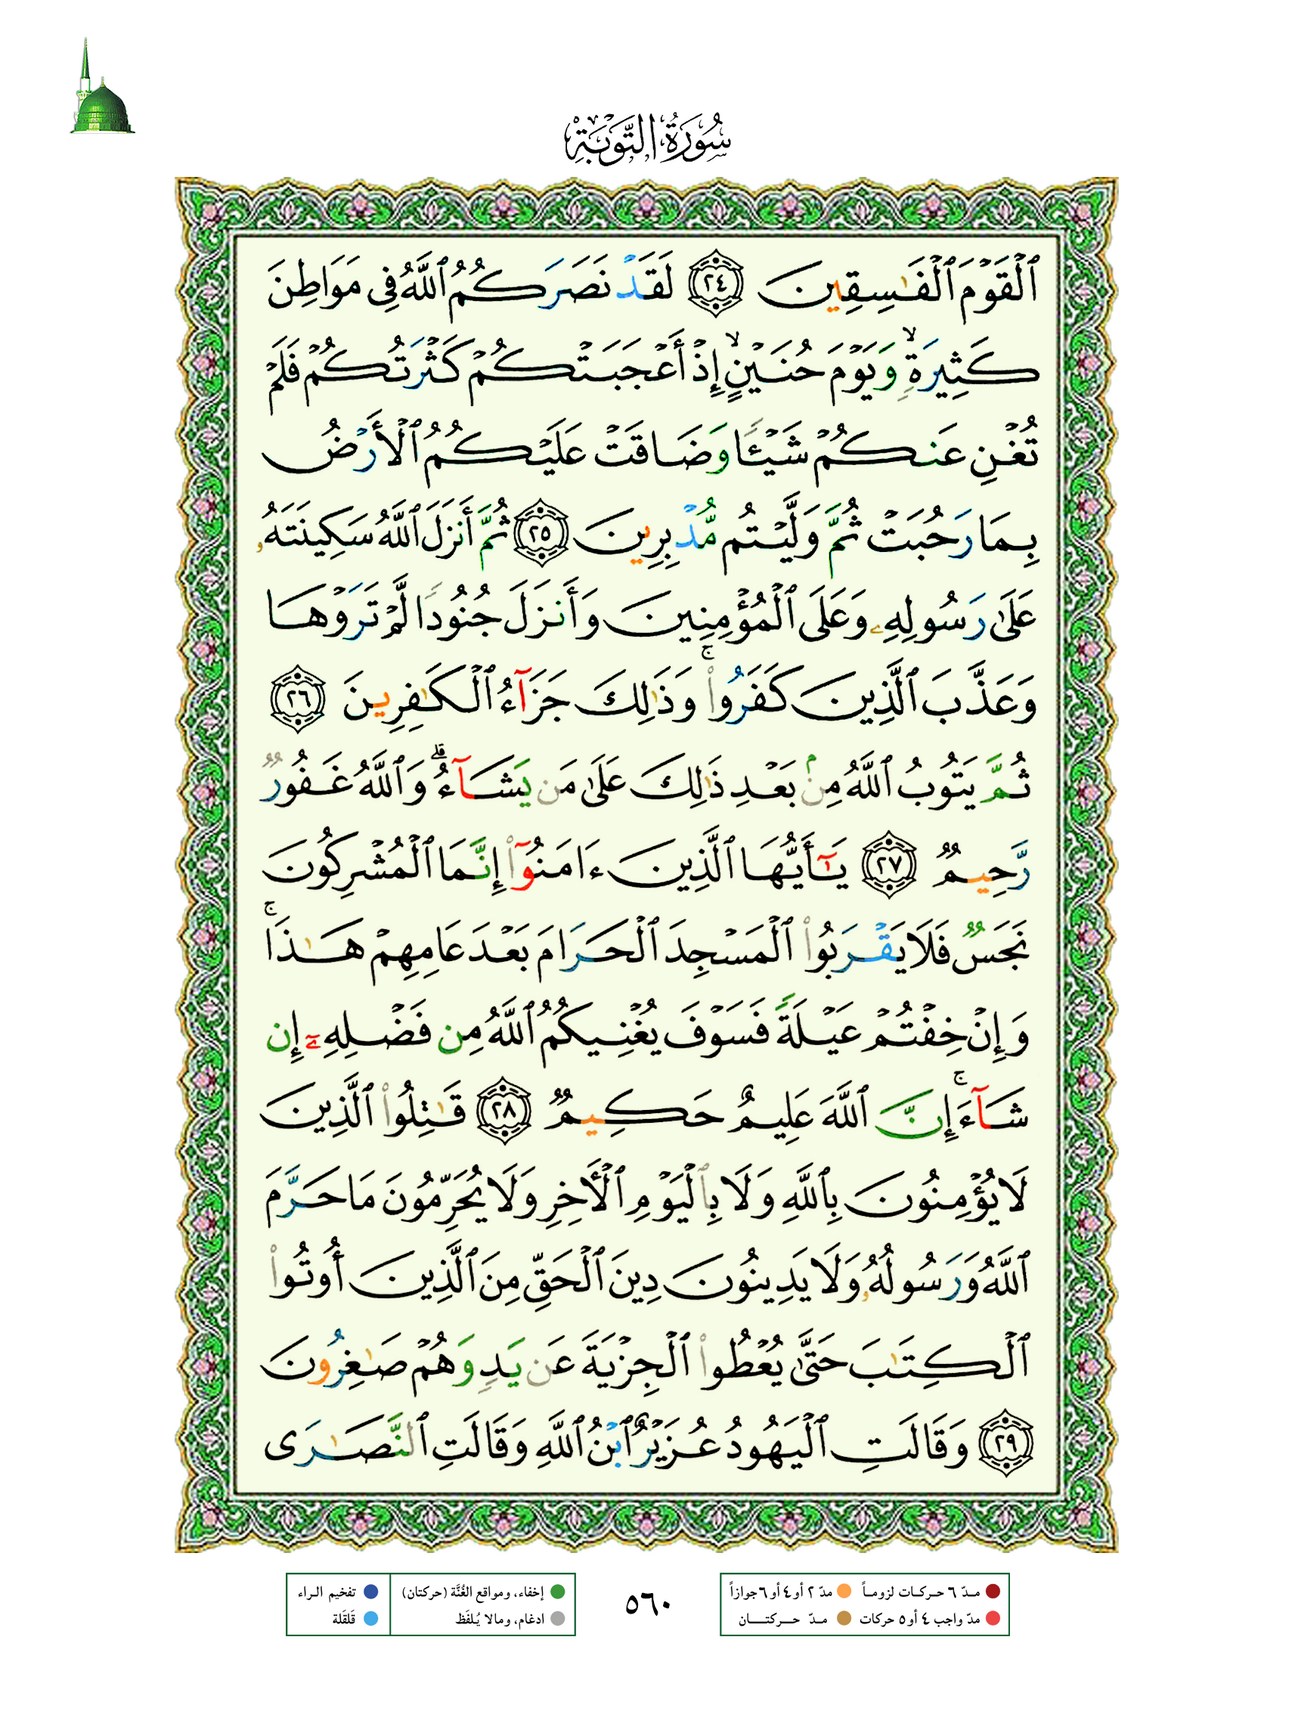 سُورَةُ التَّوْبَةِ
ٱلْقَوْمَ ٱلْفَٰسِقِينَ ٢٤ لَقَدْ نَصَرَكُمُ ٱللَّهُ فِى مَوَاطِنَ
كَثِيرَةٍ ۙ وَيَوْمَ حُنَيْنٍ ۙ إِذْ أَعْجَبَتْكُمْ كَثْرَتُكُمْ فَلَمْ
تُغْنِ عَنكُمْ شَيْـًٔا وَضَاقَتْ عَلَيْكُمُ ٱلْأَرْضُ
بِمَا رَحُبَتْ ثُمَّ وَلَّيْتُم مُّدْبِرِينَ ٢٥ ثُمَّ أَنزَلَ ٱللَّهُ سَكِينَتَهُۥ
عَلَىٰ رَسُولِهِۦ وَعَلَى ٱلْمُؤْمِنِينَ وَأَنزَلَ جُنُودًا لَّمْ تَرَوْهَا
وَعَذَّبَ ٱلَّذِينَ كَفَرُوا۟ ۚ وَذَٰلِكَ جَزَآءُ ٱلْكَٰفِرِينَ ٢٦
ثُمَّ يَتُوبُ ٱللَّهُ مِنۢ بَعْدِ ذَٰلِكَ عَلَىٰ مَن يَشَآءُ ۗ وَٱللَّهُ غَفُورٌ
رَّحِيمٌ ٢٧ يَٰٓأَيُّهَا ٱلَّذِينَ ءَامَنُوٓا۟ إِنَّمَا ٱلْمُشْرِكُونَ
نَجَسٌ فَلَا يَقْرَبُوا۟ ٱلْمَسْجِدَ ٱلْحَرَامَ بَعْدَ عَامِهِمْ هَٰذَا ۚ
وَإِنْ خِفْتُمْ عَيْلَةً فَسَوْفَ يُغْنِيكُمُ ٱللَّهُ مِن فَضْلِهِۦٓ إِن
شَآءَ ۚ إِنَّ ٱللَّهَ عَلِيمٌ حَكِيمٌ ٢٨ قَٰتِلُوا۟ ٱلَّذِينَ
لَا يُؤْمِنُونَ بِٱللَّهِ وَلَا بِٱلْيَوْمِ ٱلْأَخِرِ وَلَا يُحَرِّمُونَ مَا حَرَّمَ
ٱللَّهُ وَرَسُولُهُۥ وَلَا يَدِينُونَ دِينَ ٱلْحَقِّ مِنَ ٱلَّذِينَ أُوتُوا۟
ٱلْكِتَٰبَ حَتَّىٰ يُعْطُوا۟ ٱلْجِزْيَةَ عَن يَدٍ وَهُمْ صَٰغِرُونَ
٢٩ وَقَالَتِ ٱلْيَهُودُ عُزَيْرٌ ٱبْنُ ٱللَّهِ وَقَالَتِ ٱلنَّصَٰرَى
مدّ ٦ حركات لزوماً مدّ ٢ أو ٤ أو ٦ جوازاً
مدّ واجب ٤ أو ٥ حركات مدّ حركتان
٥٦٠
إخفاء، ومواقع الغُنَّة (حركتان) تفخيم الراء
ادغام، ومالا يُلفَظ قَلقَلة